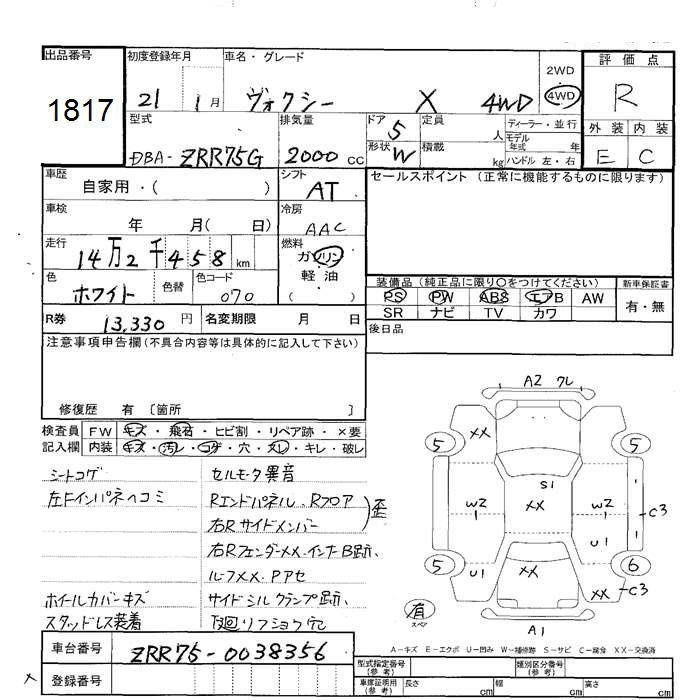 出品番号
1817
初度登録年月
21年 1月
車名・グレード
ヴォクシー X 4WD
2WD
4WD
評価点
R
外装 内装
E C
型式
DBA- ZRR75G
排気量
2000 CC
ドア
5
形状
W
定員 人
積載 kg
ディーラー・並行
モデル年式 年
ハンドル 左・右
車歴
自家用・( )
シフト
AT
セールスポイント (正常に機能するものに限ります)
車検
年 月( 日)
冷房
AAC
走行
14万2千458 km
燃料
ガソリン
軽油
( )
色
ホワイト
色替
色コード
070
装備品 (純正品に限り○をつけてください)
新車保証書
PS PW ABS エアB AW
SR ナビ TV カワ
有・無
R券
13,330 円
名変期限 月 日
後日品
注意事項申告欄(不具合内容等は具体的に記入して下さい)
修復歴 有 〔箇所 〕
検査員記入欄
FW キズ・飛石・ヒビ割・リペア跡・×要
内装 キズ・汚レ・コゲ・穴・スレ・キレ・破レ
シートコゲ
左Fインパネヘコミ
ホイールカバーキズ
スタッドレス装着
セルモータ異音
Rエンドパネル、Rフロア
右Rサイドメンバー
歪
右RフェンダーXX、インナーB跡、
ルーフXX、Pアセ
サイドシルクランプ跡、
下廻リフショウ冗
A2 クレ
XX
5
5
S1
W2
XX
W2
C3
U1
5
U1
XX
6
XX
C3
有
スペア
A1
A-キズ E-エクボ U-凹み W-補修跡 S-サビ C-腐食 XX-交換済
車台番号
ZRR75-0038356
登録番号
型式指定番号(参考)
類別区分番号(参考)
車庫証明用(参考)
長さ cm
幅 cm
高さ cm